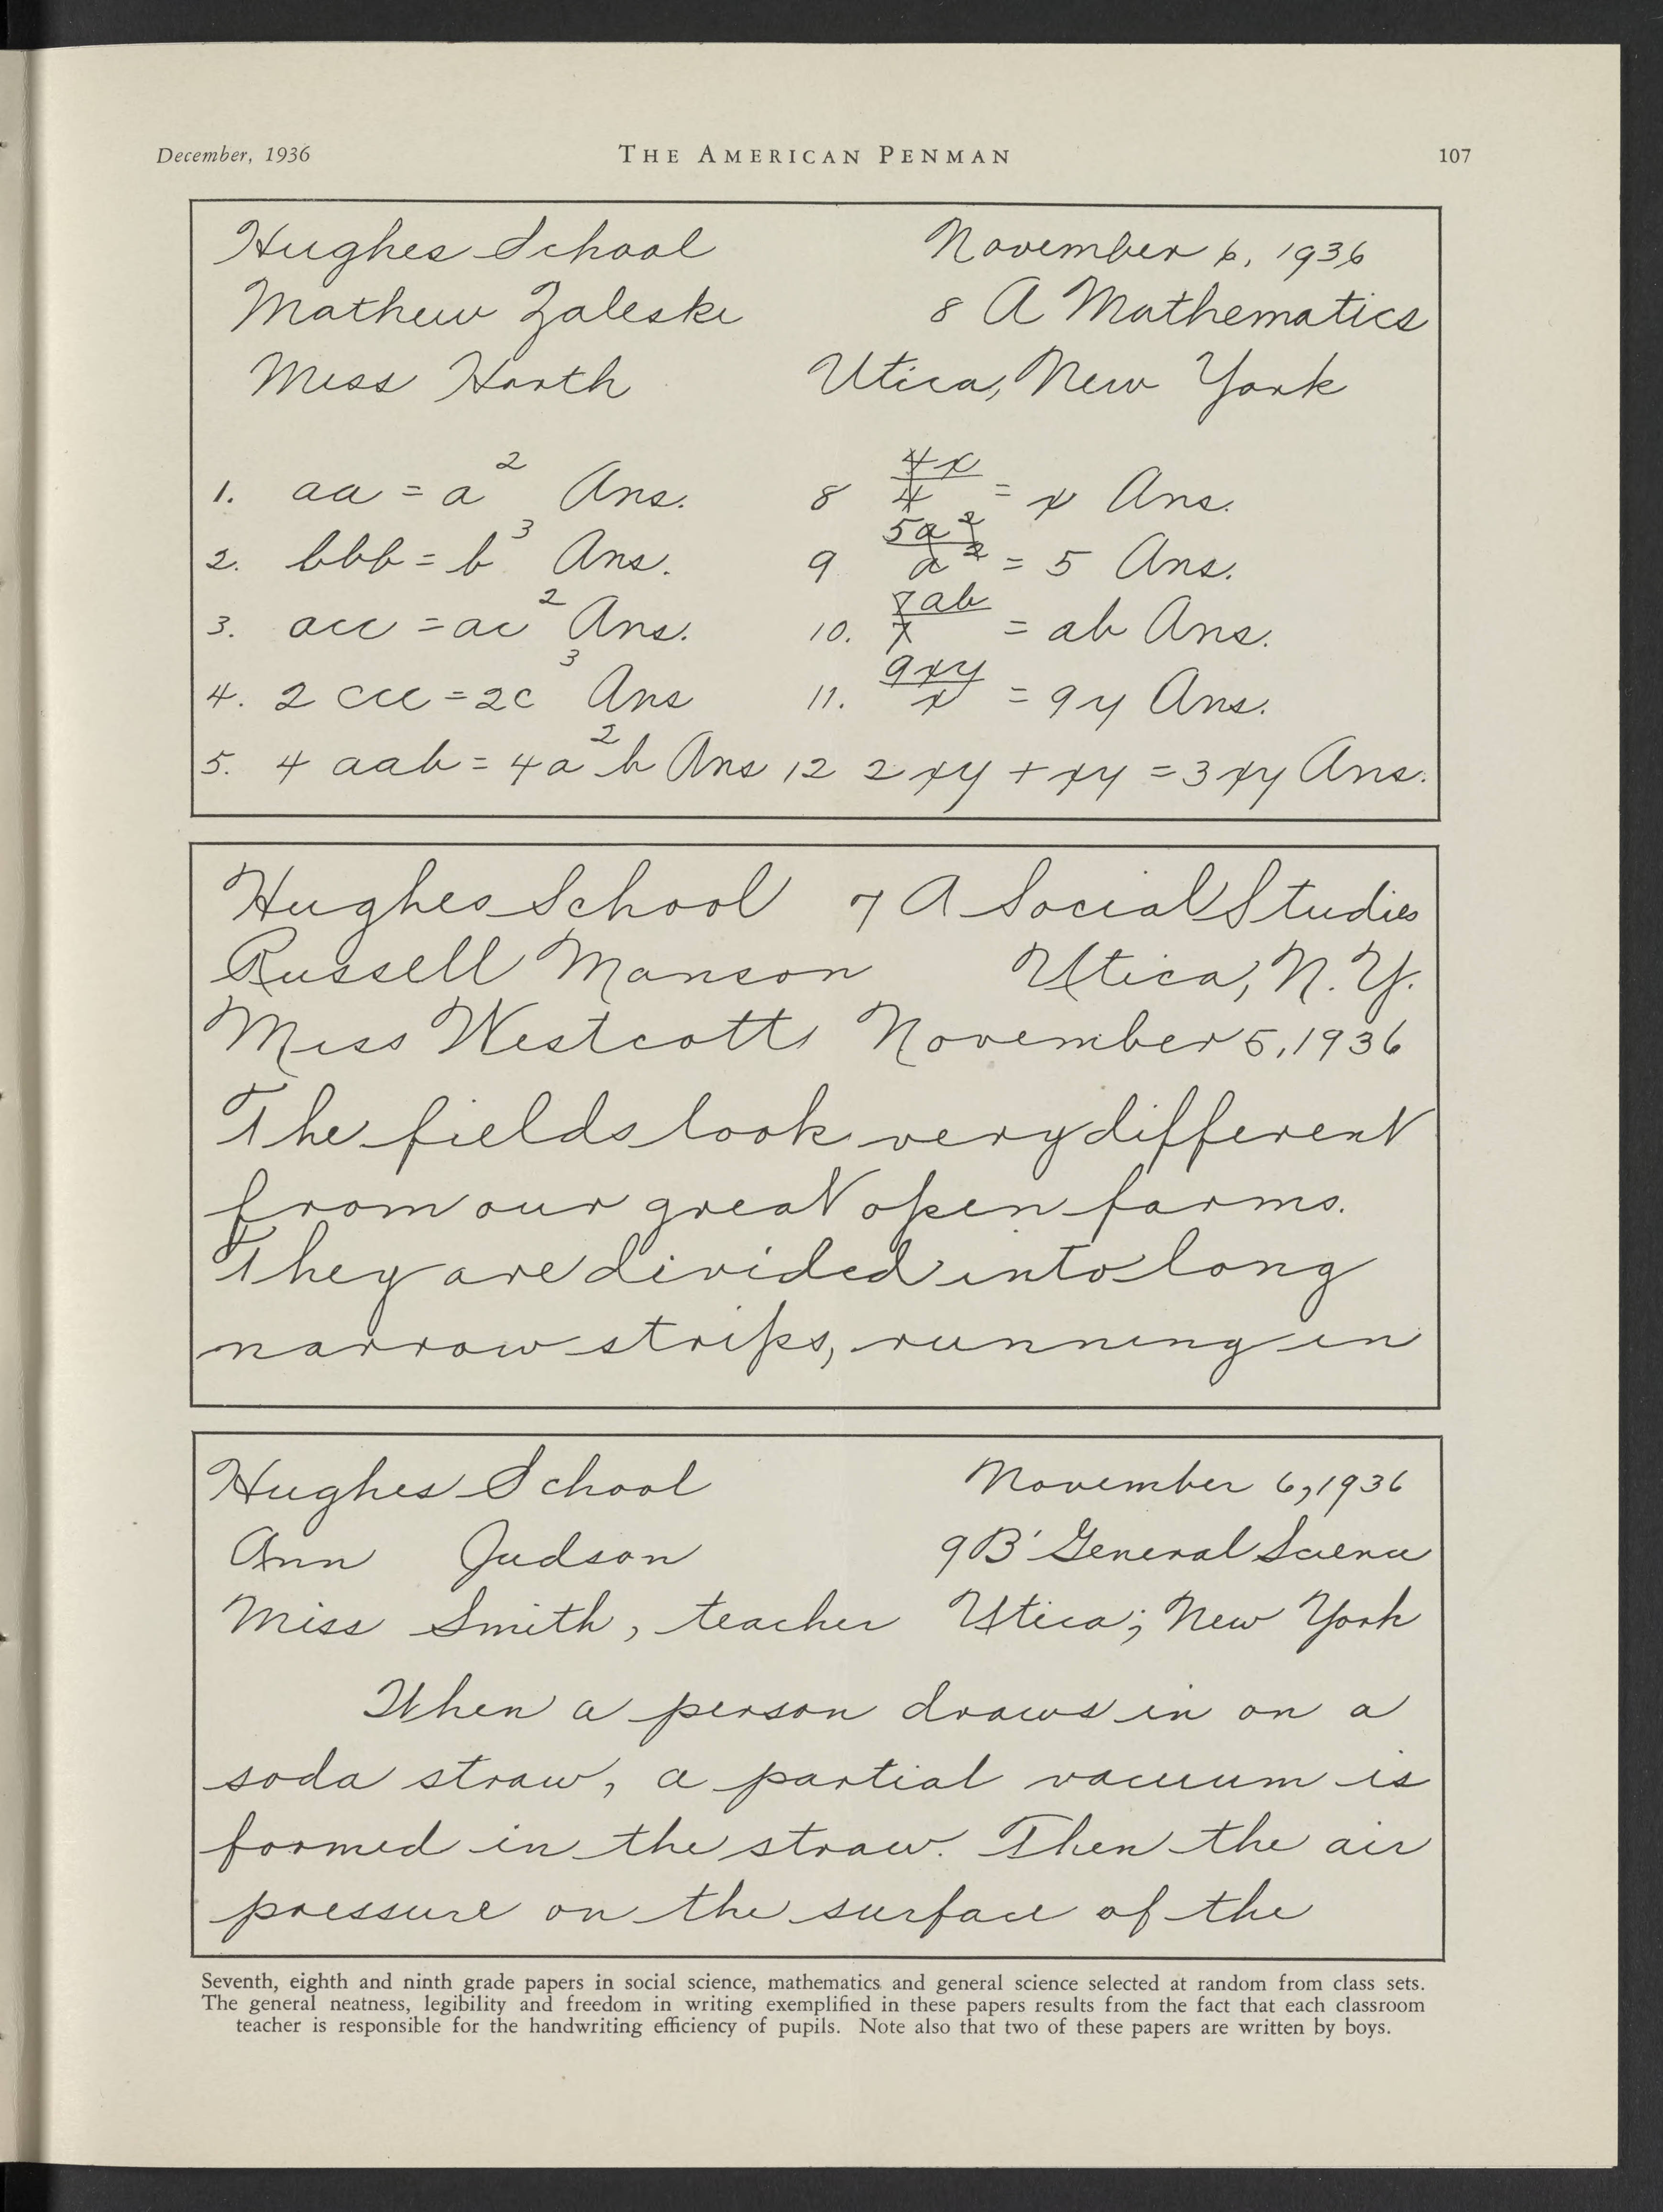 December, 1936 THE AMERICAN PENMAN 107
Hughes School November 6, 1936
Mathew Zaleski 8 A Mathematics
Miss Horth Utica, New York
1. aa = a² Ans. 8 4x/4 = x Ans.
2. bbb = b³ Ans. 9 5a²/a² = 5 Ans.
3. acc = ac² Ans. 10. 7ab/7 = ab Ans.
4. 2 ccc = 2c³ Ans 11. 9xy/x = 9y Ans.
5. 4 aab = 4a²b Ans 12 2xy + xy = 3xy Ans.
Hughes School 7 A Social Studies
Russell Manson Utica, N.Y.
Miss Westcott November 5, 1936
The fields look very different
from our great open farms.
They are divided into long
narrow strips, running in
Hughes School November 6, 1936
Ann Judson 9B' General Science
Miss Smith, teacher Utica; New York
When a person draws in on a
soda straw, a partial vacuum is
formed in the straw. Then the air
pressure on the surface of the
Seventh, eighth and ninth grade papers in social science, mathematics and general science selected at random from class sets.
The general neatness, legibility and freedom in writing exemplified in these papers results from the fact that each classroom
teacher is responsible for the handwriting efficiency of pupils. Note also that two of these papers are written by boys.